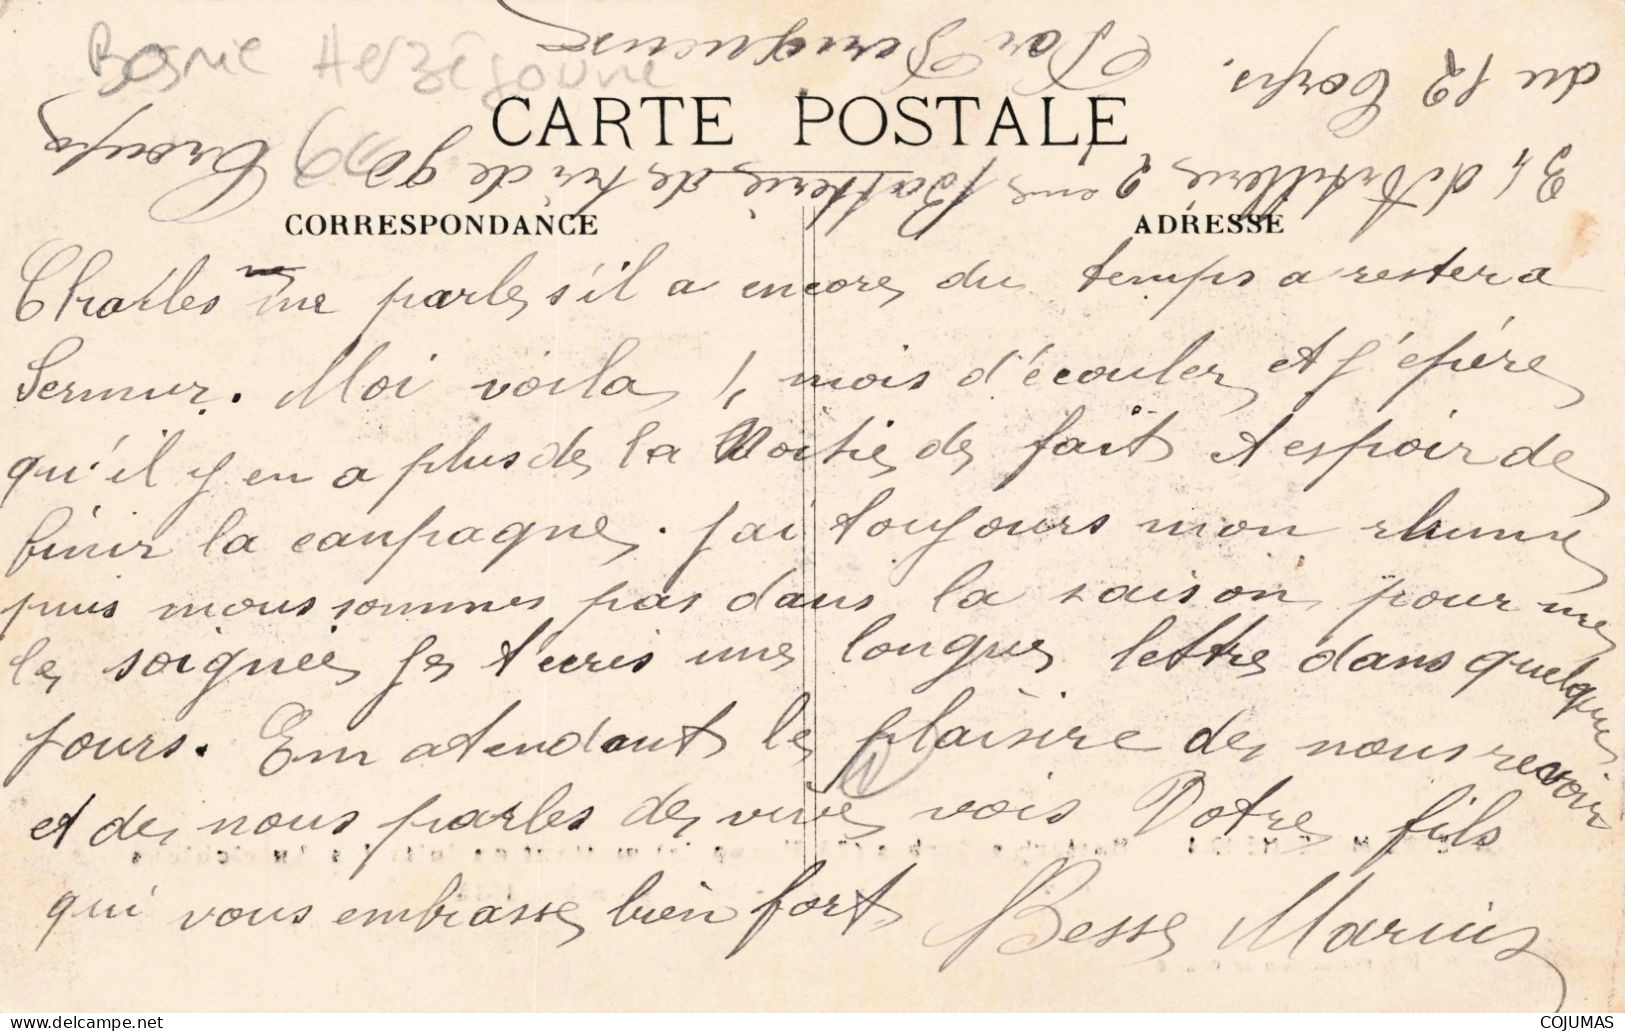 Bosnie Herzégovine
CARTE POSTALE
CORRESPONDANCE
ADRESSE
Charles me parle s'il a encore du temps a rester a
Sermur. Moi voila 1, mois d'écouler et j'épére
qu'il y en a plus de la Moitie de fait et espoir de
finir la canpagne. jai toujours mon rhume
puis nous sommes pas dans la saison pour me
le soignée je t ecris une longue lettre dans quelque
jours. En atendant le plaisire de nous revoir
et de nous parles de vive vois Votre fils
qui vous embrasse bien fort Besse Marius
34 d'Artillerie 2 eme Batterie de tir de 90 Croupe
du 12 Corps. Par
COJUMAS